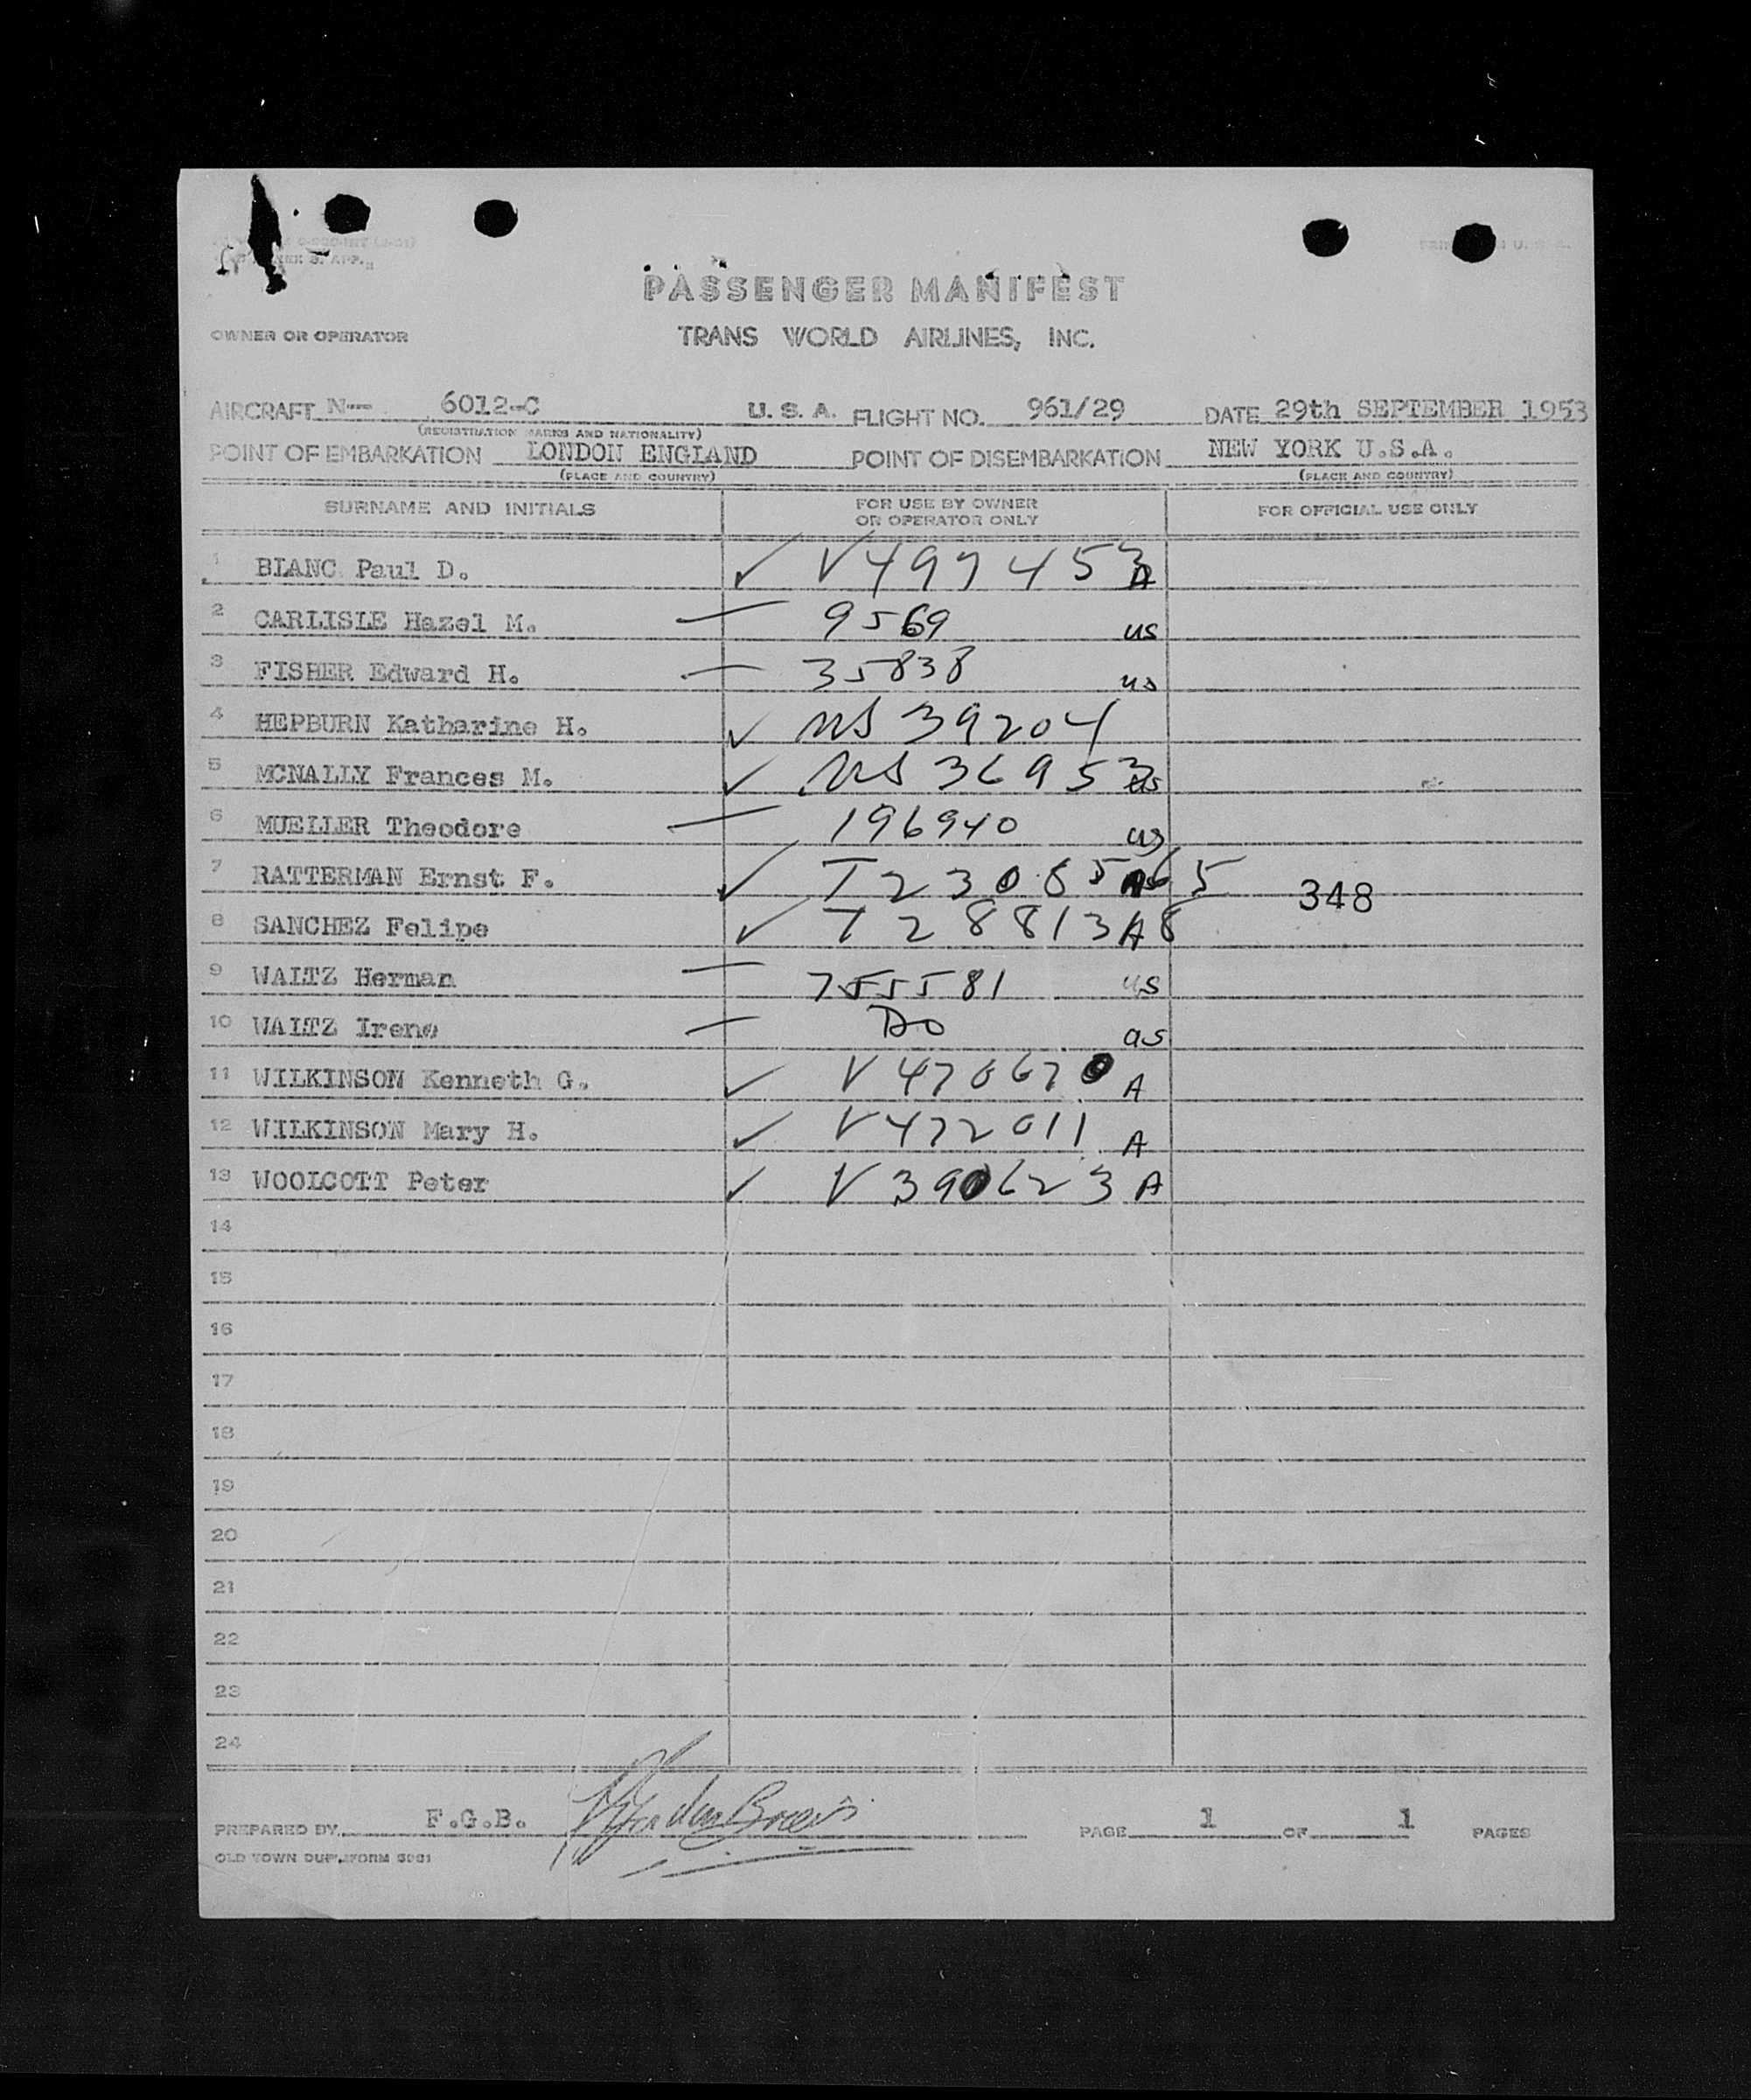 PASSENGER MANIFEST
OWNER OR OPERATOR TRANS WORLD AIRLINES, INC.
AIRCRAFT N-- 6012-C U. S. A. FLIGHT NO. 961/29 DATE 29th SEPTEMBER 1953
(REGISTRATION MARKS AND NATIONALITY)
POINT OF EMBARKATION LONDON ENGLAND POINT OF DISEMBARKATION NEW YORK U.S.A.
(PLACE AND COUNTRY) (PLACE AND COUNTRY)
SURNAME AND INITIALS FOR USE BY OWNER OR OPERATOR ONLY FOR OFFICIAL USE ONLY
1 BLANC Paul D. ✓ V497453 A
2 CARLISLE Hazel M. — 9569 us
3 FISHER Edward H. — 35838 us
4 HEPBURN Katharine H. ✓ US 39204
5 MCNALLY Frances M. ✓ US 36953 us
6 MUELLER Theodore — 196940 us
7 RATTERMAN Ernst F. ✓ 348
8 SANCHEZ Felipe ✓ T288138 A
9 WALTZ Herman — 755581 us
10 WALTZ Irene — Do us
11 WILKINSON Kenneth G. ✓ V470670 A
12 WILKINSON Mary H. ✓ V472011 A
13 WOOLCOTT Peter ✓ V390623 A
14
15
16
17
18
19
20
21
22
23
24
PREPARED BY F.G.B. PAGE 1 OF 1 PAGES
OLD TOWN DUP. FORM